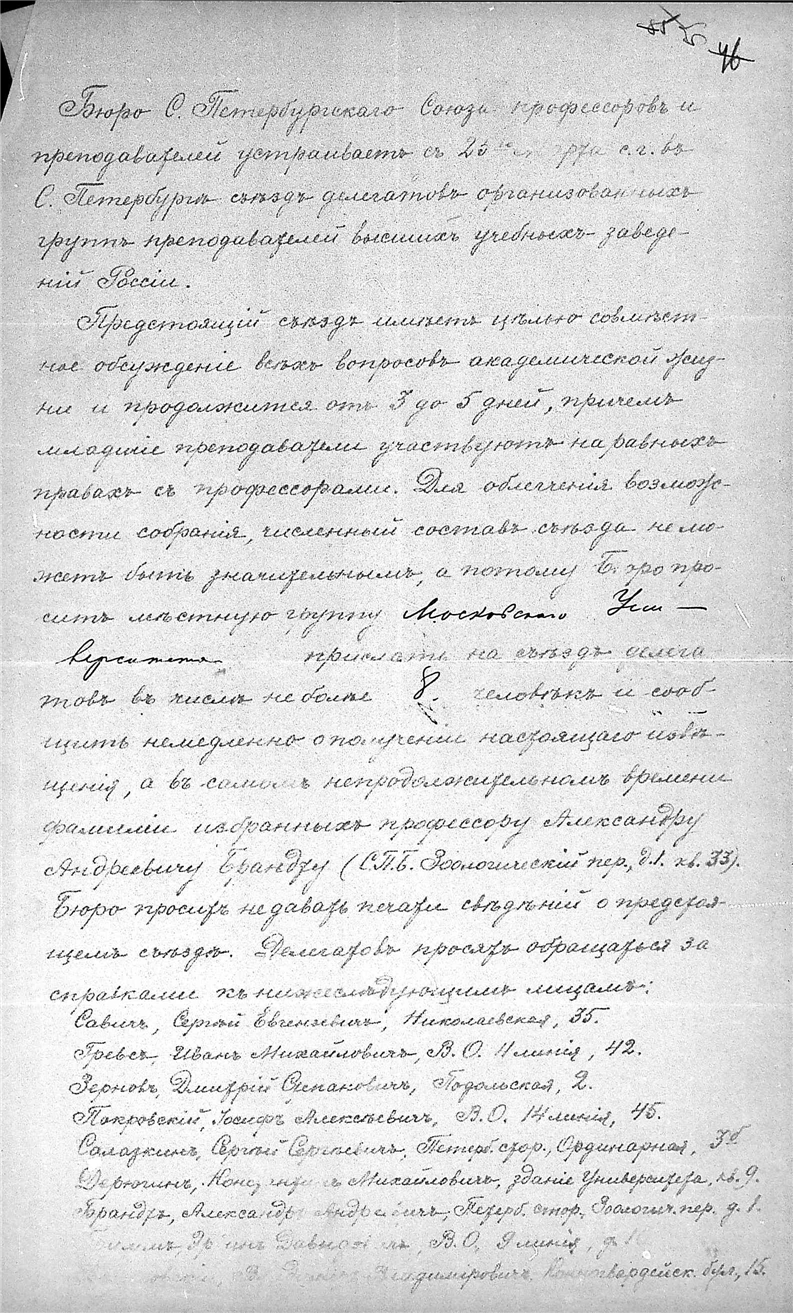 46
Бюро С. Петербургскаго Союза профессоровъ и
преподавателей устраиваетъ съ 25го марта с.г. въ
С. Петербургѣ съѣздъ делегатовъ организованныхъ
группъ преподавателей высшихъ учебныхъ заведе-
ній Россіи.
Предстоящій съѣздъ имѣетъ цѣлью совмѣст-
ное обсужденіе всѣхъ вопросовъ академической жиз-
ни и продолжится отъ 3 до 5 дней, причемъ
младшіе преподаватели участвуютъ на равныхъ
правахъ съ профессорами. Для облегченія возмож-
ности собранія, численный составъ съѣзда не мо-
жетъ быть значительнымъ, а потому Бюро про-
ситъ мѣстную группу Московскаго Уни-
верситета прислать на съѣздъ делега-
товъ въ числѣ не болѣе 8 человѣкъ и сооб-
щить немедленно о полученіи настоящаго извѣ-
щенія, а въ самомъ непродолжительномъ времени
фамиліи избранныхъ профессору Александру
Андреевичу Брандту (С.П.Б. Зоологическій пер., д.1. кв. 33).
Бюро проситъ не давать печати свѣдѣній о предстоя-
щемъ съѣздѣ. Делегатовъ просятъ обращаться за
справками къ нижеслѣдующимъ лицамъ:
Савичъ, Сергѣй Евгеніевичъ, Николаевская, 35.
Гревсъ, Иванъ Михайловичъ, В.О. 4 линія, 42.
Зерновъ, Дмитрій Степановичъ, Подольская, 2.
Покровскій, Іосифъ Алексѣевичъ, В.О. 14 линія, 45.
Салазкинъ, Сергѣй Сергѣевичъ, Петерб. стор., Ординарная,
Дерюгинъ, Константинъ Михайловичъ, зданіе Университета, кв. 9.
Брандтъ, Александръ Андреевичъ, Петерб. стор., Зоологич. пер. д. 1.
Гриммъ, Давидовичъ, В.О, 9 линія, д.
Владиміровичъ, Конногвардейск. бул., 15.